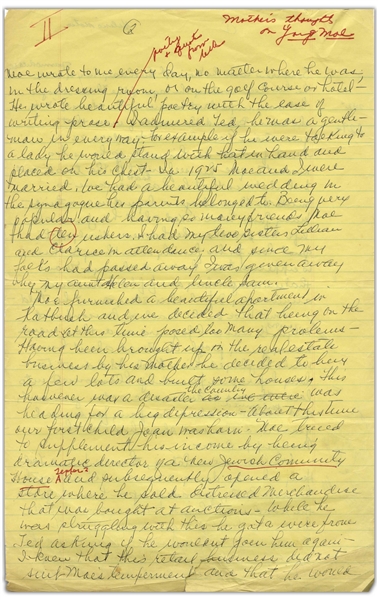 II
Mother's thought
on Young Moe
poetry
& Gent
from
Moe wrote to me every day, no matter where he was,
in the dressing room, or on the golf course or hotel—
He wrote beautiful poetry with the ease of
writing prose. I admired Ted, he was a gentle-
man in every way— for example if he were talking to
a lady he would stand with hat in hand and
placed on his chest. In 1925 Moe and I were
married. We had a beautiful wedding in
the synagogue his parents belonged to. Being very
popular and having so many friends, Moe
had ten ushers. I had my two sisters Lillian
and Clarice in attendance, and since my
had passed away I was given away
by my aunt and uncle Sam.
Moe furnished a beautiful apartment in
Flatbush and we decided that being on the
road at this time posed too many problems—
Having been brought up in the real estate
business by his mother he decided to buy
a few lots and built some houses, this
however was a disaster as the country was
heading for a big depression— About this time
our first child Joan was born— Moe tried
to supplement his income by being
dramatic director for the Jewish Community
House and subsequently opened a
store where he sold distressed merchandise
that was bought at auctions— while he
was struggling with this he got a wire from
Ted asking if he wouldn't join him again—
I knew that this retail business did not
suit Moe's temperment and that he would